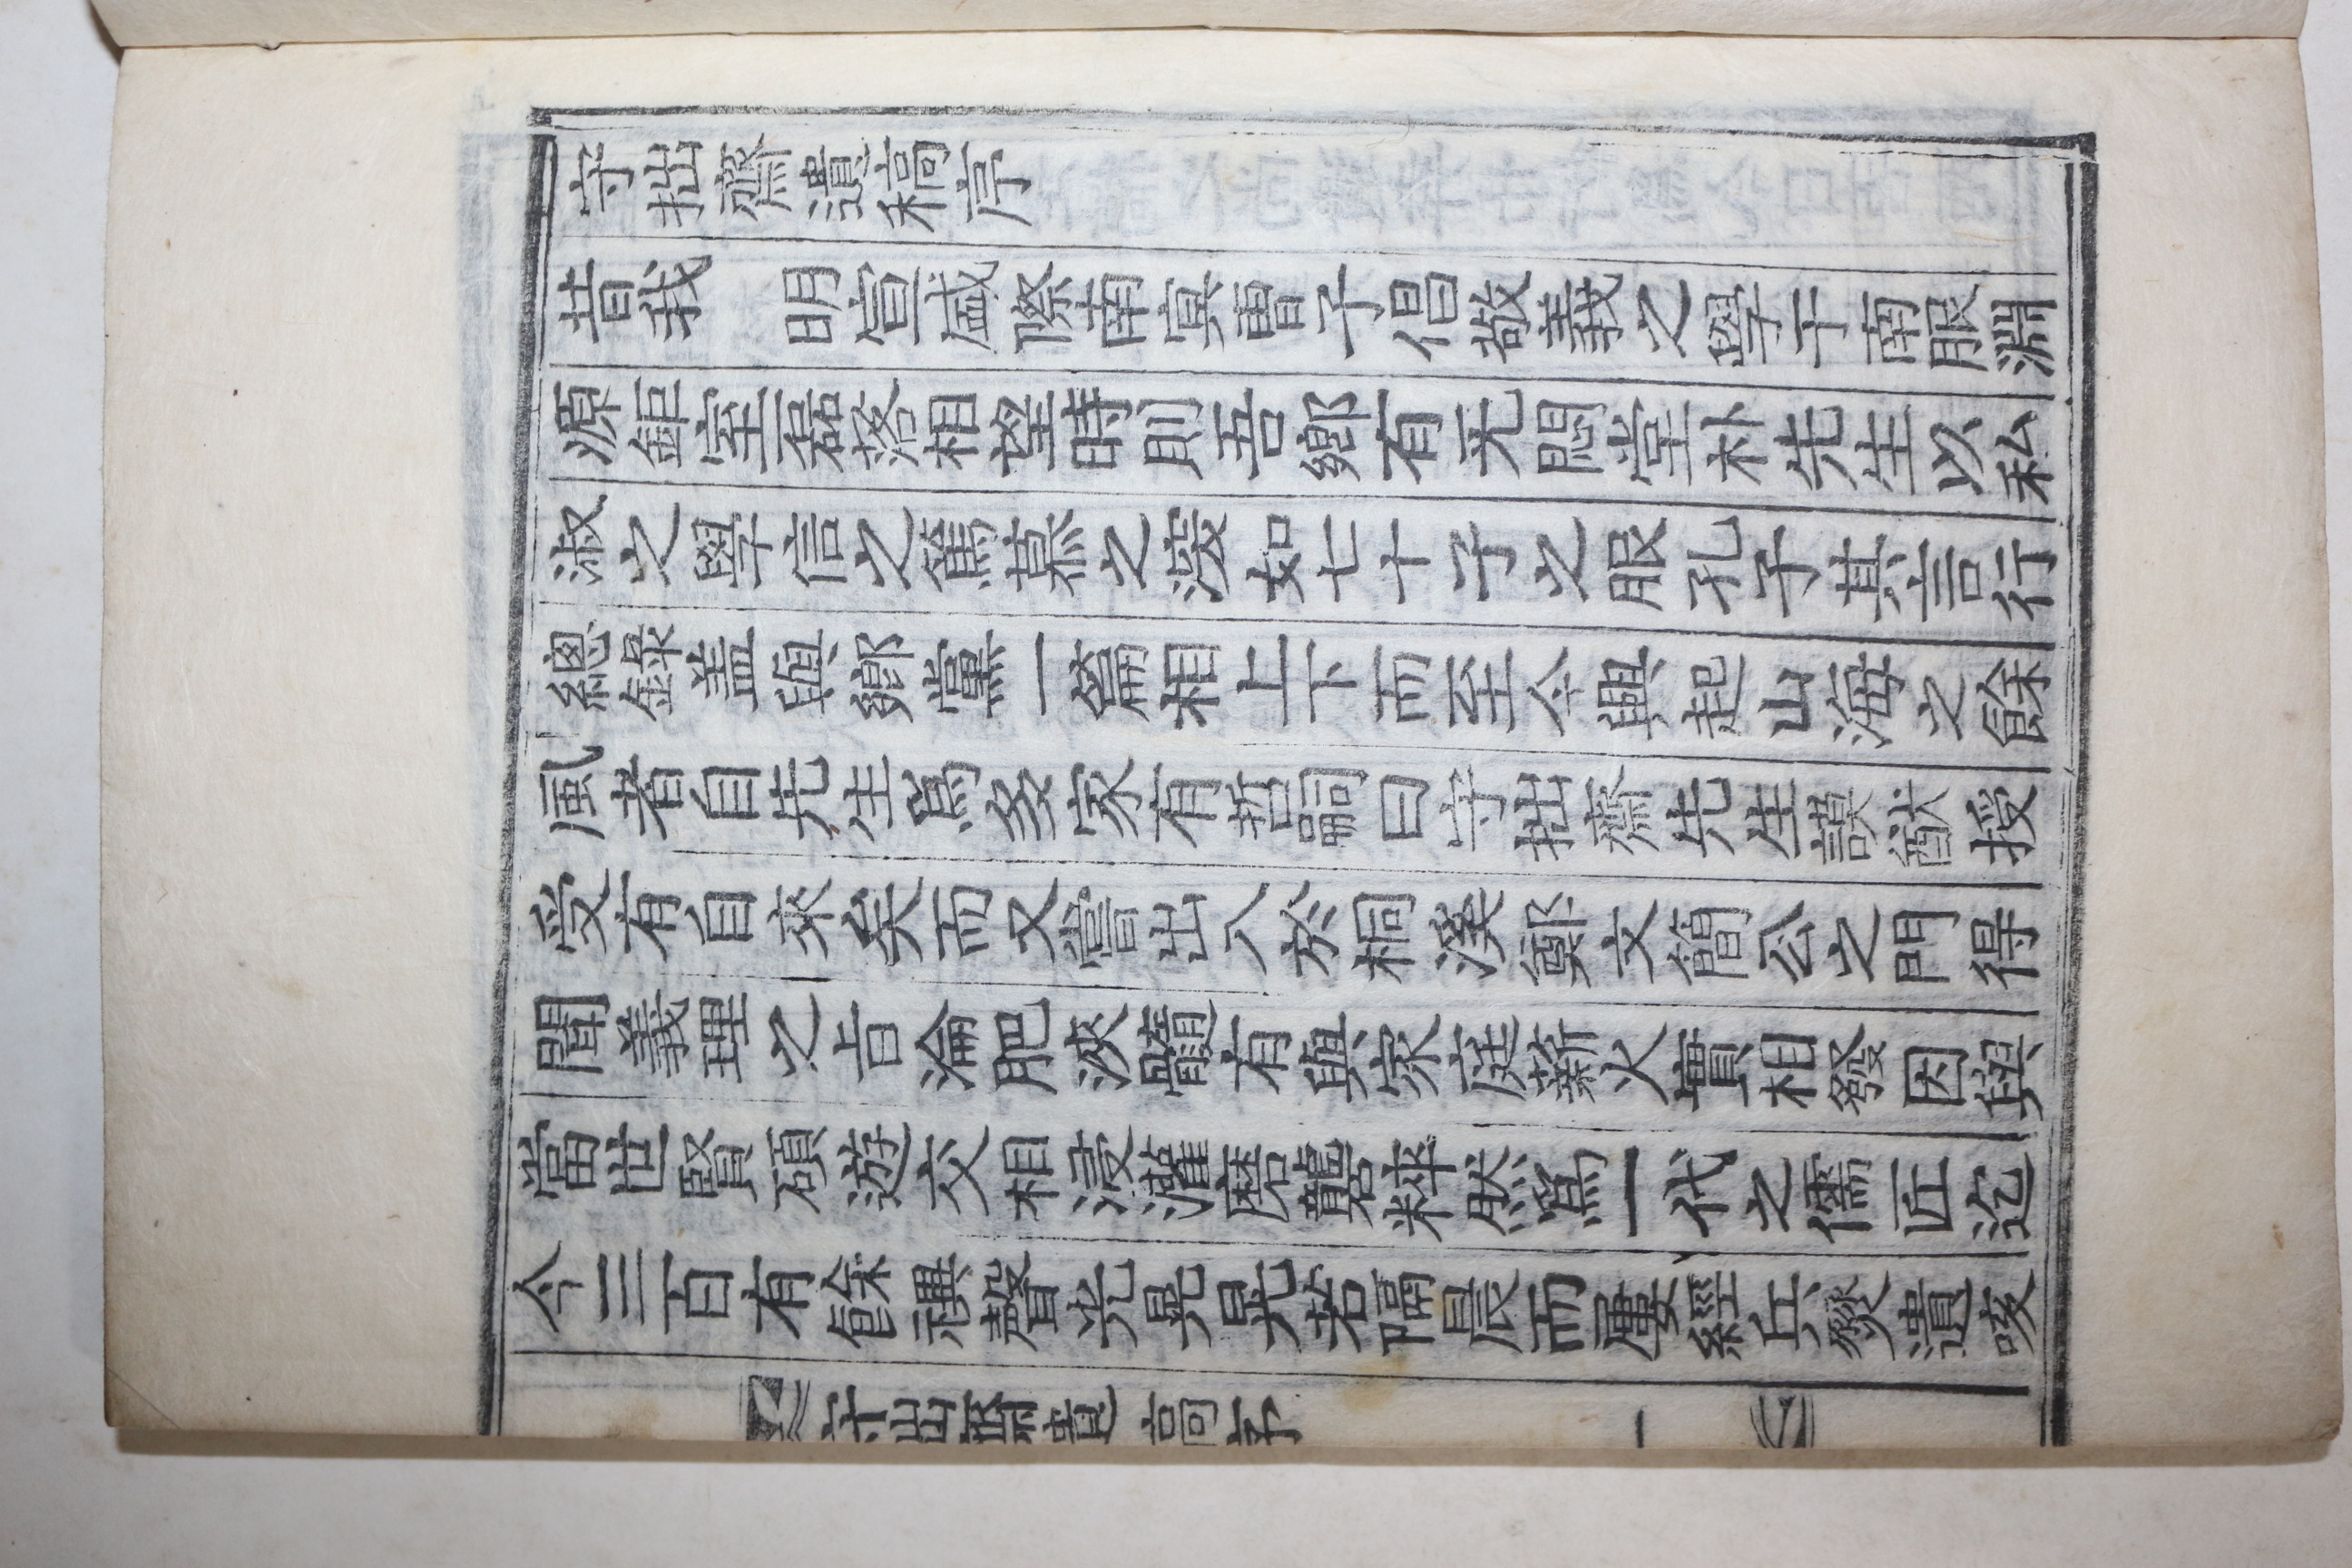 守拙齋遺稿序
昔我 明宣盛際南冥曺子倡敬義之學于南服淵
源鉅室磊落相望時則吾鄕有无悶堂朴先生以私
淑之學信之篤慕之深如七十子之服孔子其言行
總錄盖與鄕黨一篇相上下而至今興起山海之餘
風者自先生爲多家有哲嗣曰守拙齋先生謨猷授
受有自來矣而又嘗出入於桐溪鄭文簡公之門得
聞義理之㫖淪肥浹髓有與家庭薪火實相發因與
當世賢碩遊交相浸灌磨礱粹然爲一代之儒匠迄
今三百有餘禩聲光晃晃若隔晨而屢經兵燹遺咳
守拙齋遺稿序 一